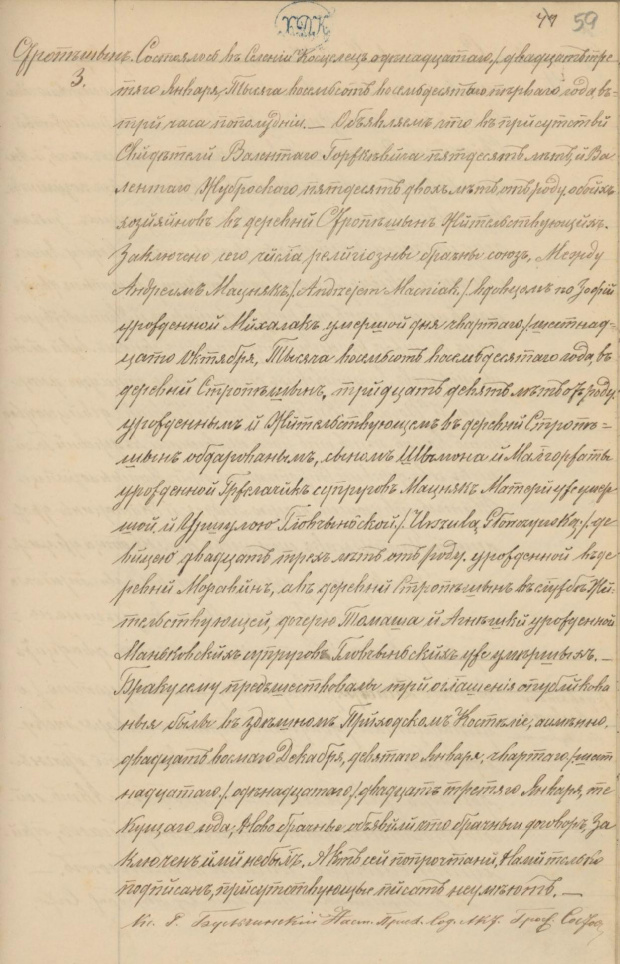 47 59
Стропѣшынъ. Состоялось въ Селеніи Косцелецъ одинадцатаго,/двадцать тре-
3. тяго Января, Тысяча восемьсотъ восемьдесятаго перваго года, въ
три часа пополудни. — Объявляемъ что въ присутствіи
Свидѣтели Валентаго пятдесятъ лѣтъ, и Ва-
лентаго пятдесятъ двохъ лѣтъ отъ роду, обоихъ
хозяйновъ въ деревнѣ Стропѣшынъ Жительствующихъ.
Заключено сего числа религіозны брачны союзъ, Между
Андреимъ Мацнякъ,/Andrzejem Macniak./ вдовцемъ по Зофіи
урожденной Михалакъ умершой дня чвартаго,/шестнад-
цато Октября, Тысяча восемьсотъ восемьдесятаго года, въ
деревнѣ Стропѣшынъ, тридцать девять лѣтъ отъ роду
урожденнымъ и Жительствующемъ въ деревнѣ Стропѣ-
шынъ сыномъ Шымона и Малгоржаты
урожденной супруговъ Мацнякъ Матери уже умер-
шой, и Уршулою Гловчыньской,/Urszulą Głowczyńską,/ дѣ-
вицею двадцать трехъ лѣтъ отъ роду, урожденной въ де-
ревнѣ Моравинъ, а въ деревнѣ Стропѣшынъ въ службѣ Жи-
тельствующей, дочерю Томаша и Агнѣшки урожденной
Маньковскихъ супруговъ Гловчыньскихъ уже умершыхъ. —
Браку сему предшествовалы три оглашенія опубликова-
ныя былы въ здѣшномъ Приходскомъ Костеліе, а имѣнно.
двадцать восмаго Декабря, девятаго Января, чвартаго,/шест-
надцатаго,/ одинадцатаго,/двадцать третяго Января, те-
кущаго года; Новобрачные объявили что брачным договоръ, За-
ключенъ ими небылъ. Актъ сей попрочтаніи, Нами только
подписанъ, присутствующые писать неумѣютъ. —
Кс. Наст. Прих. Сод. Акт. Граж. Сост.